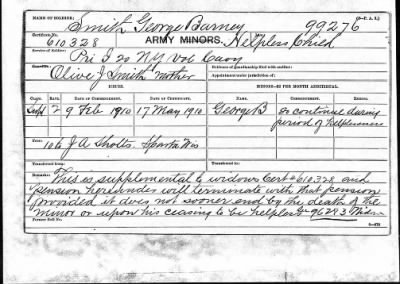 NAME OF SOLDIER: Smith George Barney 99276
Certificate No. 610328 ARMY MINORS. Helpless Child
Service of Soldier: Pri I 20 N.Y. Vol Cavy
Guardian: Olive J Smith Mother
Appointment under jurisdiction of:
ISSUE. MINORS—$2 PER MONTH ADDITIONAL.
CLASS. RATE. DATE OF COMMENCEMENT. DATE OF CERTIFICATE. COMMENCEMENT. ENDING.
2 9 Feb 1910 17 May 1910 George B or continue during
period of helplessness
to J A Sholts Sparta Wis
Transferred from:
Transferred to:
Remarks: This is supplemental to widows Cert #610,328 and
pension hereunder will terminate with that pension
provided it does not sooner end by the death of the
minor or upon his ceasing to be helpless 96283
Former Roll No.